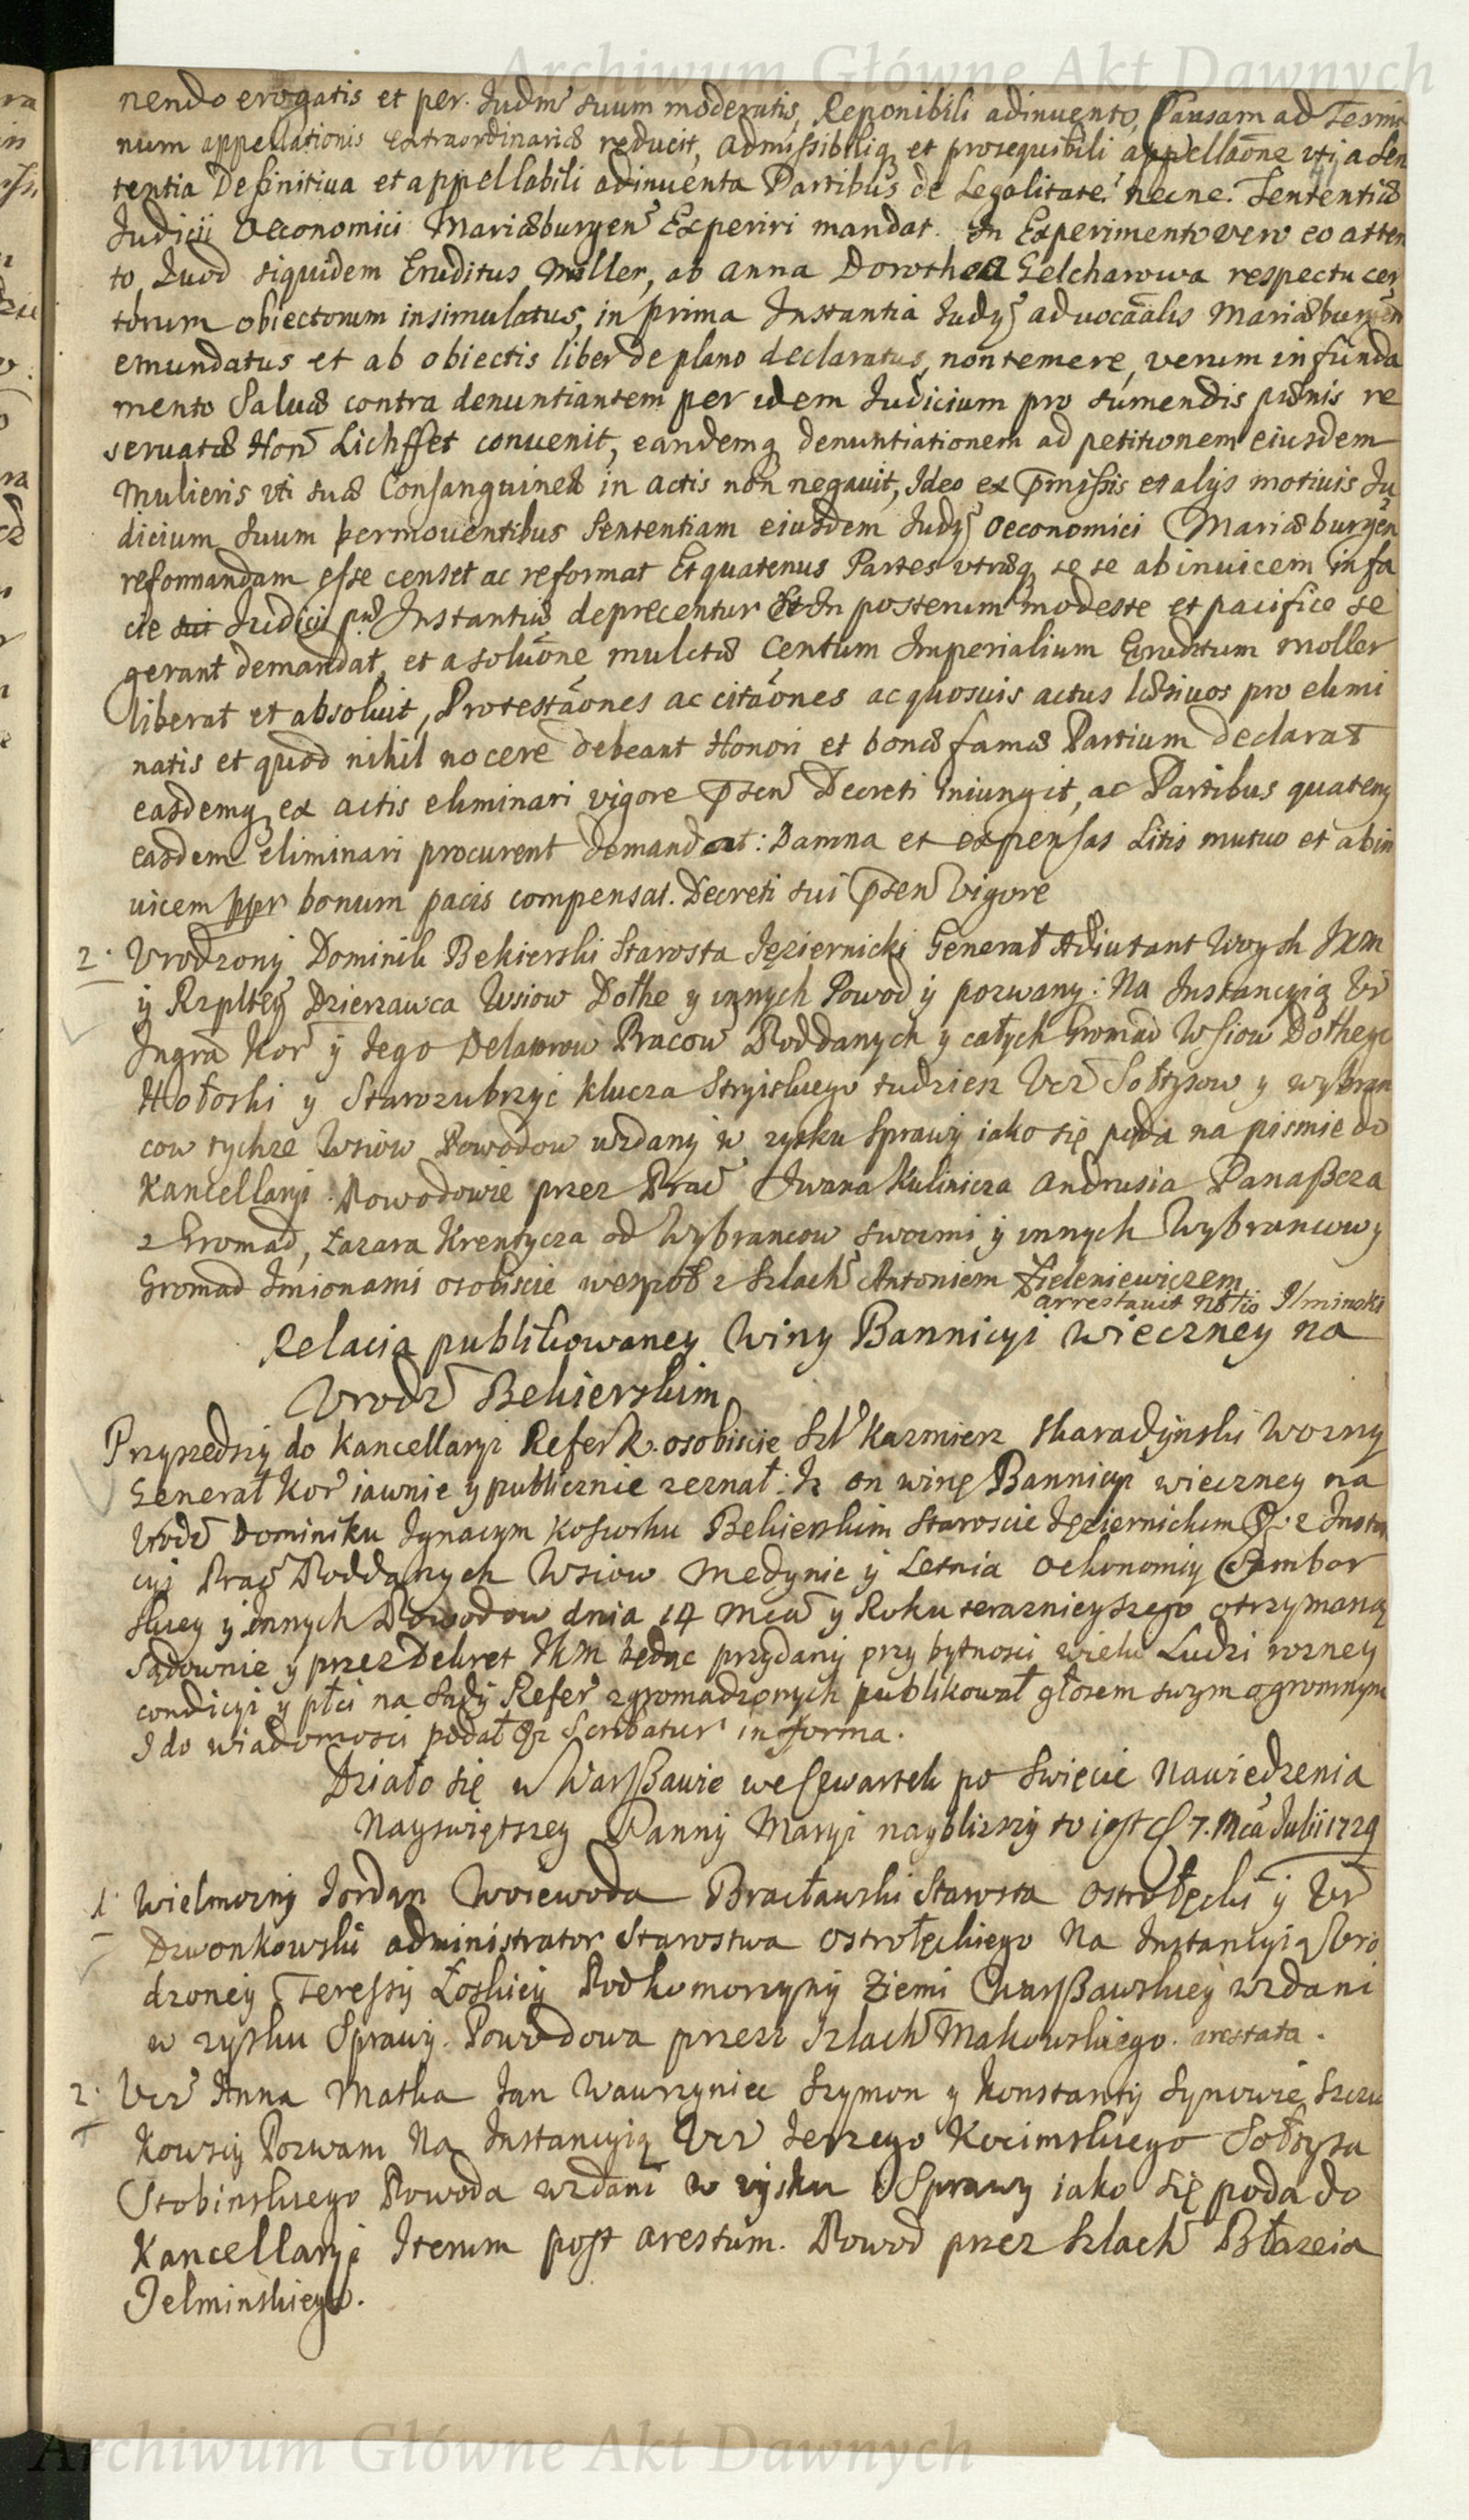 Archiwum Główne Akt Dawnych
nendo erogatis et per Judm suum moderatis, Reponibili adinuento, Causam ad Termi
num appellationis extraordinariæ reducit, admissibiliq et prosequibili appellaõne vti a Sen
tentia Definitiua et appellabili adinuenta Partibus de Legalitate necne Sententiæ
Judicii Oeconomici Mariæburgen Experiri mandat. In Experimento vero eo atten
to, Quod siquidem Eruditus Moller, ab Anna Dorothea Gelcharowa respectu cer
torum obiectorum insimulatus, in prima Instantia Judÿ aduocãalis Mariæburgen
emundatus et ab obiectis liber de plano declaratus, non temere, verum in funda
mento Saluæ contra denuntiantem per idem Judicium pro sumendis pænis re
seruatæ Hon Lichffet conuenit, eandemq denuntiationem ad petitionem eiusdem
Mulieris vti suæ Consanguineæ in actis non negauit, Ideo ex p̃missis et alÿs motiuis Ju
dicium suum permouentibus Sententiam eiusdem Judÿ Oeconomici Mariæburgen
reformandam esse censet ac reformat Et quatenus Partes vtræq se se abinuicem in fa
cie sui Judicii Instantiæ deprecentur Et In posterum modeste et pacifice se
gerant demandat, et a soluõne mulctæ Centum Imperialium Eruditum Moller
liberat et absoluit, Protestãones ac citãones ac quosuis actus læsiuos pro elimi
natis et quod nihil nocere debeant Honori et bonæ famæ Partium declarat
easdemq ex actis eliminari vigore p̃sen Decreti iniungit, ac Partibus quatenq
easdem eliminari procurent demandat: Damna et expensas Litis mutuo et abin
uicem ppr bonum pacis compensat. Decreti sui p̃sen vigore
2. Vrodzony Dominik Bekierski Starosta Jęziernicki Generał Adiutant Woysk JKM
ÿ Rzpltey Dzierzawca Wsiow Dołhe y innych Powod ÿ pozwany: Na Instancyią Vr
Ingra Kor ÿ Jego Delatorow Pracow Poddanych y całych Gromad Wsiow Dołhego
Hołoski y Starozubrzyc klucza Stryiskiego tudziesz Vcz Sołtysow y wybran
cow tychze Wsiow Powodow wzdany w zysku Sprawy iako się poda na pismie do
Kancellaryi. Powodowie przez Prac Iwana Kulinicza Andrusia Panaßcza
z Gromad, Łazara Krentycza od Wybrancow swoimi ÿ innych Wybrancow y
Gromad Imionami osobiscie wespoł z Szlach Antoniem Zieleniewiczem
arrestauit Nbłis Ilminski
Relacia publikowaney Winy Bannicyi wieczney na
Vrodz Bekierskim
Przyszedszy do Kancellaryi Refer k. osobiscie Szl Kazmierz Skaradÿnski Wozny
Generał Kor iawnie y publicznie zeznał: Iz on winę Bannicyi wieczney na
Vrodz Dominiku Ignacym Kosiorku Bekierskim Staroscie Jęziernickim z Instan
cyi Prac Poddanych Wsiow Medynic ÿ Letnia Oekonomiy Sambor
skiey ÿ innych Powodow dnia 14 Mca y Roku terazniejszego otrzymaną
Sądownie y przez Dekret JKM będąc przydany przy bytnosci wielu Ludzi rozney
condicyi y płci na Sądy Refer zgromadzonych publikował głosem swym ogromnym
I do wiadomosci podał Scribatur in forma.
Działo się w Warßawie we Czwartek po Swięcie Nawiedzenia
Nayswiętszey Panny Maryi nayblizszy to iest 7. Mca Julii 1729
1. Wielmozny Jordan Woiewoda Bracławski Starosta Ostrołęcki ÿ Vr
Dzwonkowski administrator Starostwa Ostrołęckiego Na Instancyią Vro
dzoney Teressy Łoskiey Podkomorzyny Ziemi Warßawskiey wzdani
w zysku Sprawy. Powodowa przez Szlach Makowskiego. arestata.
2. Vcz Anna Matka Jan Wawrzyniec Szymon y Konstanty Synowie Szczu
kowscy Pozwani Na Instancyią Vcz Jerzego Kocimskiego Sołtysa
Stobinskiego Powoda wzdani w zysku Sprawy iako się poda do
Kancellaryi Iterum post arestum. Powod przez Szlach Błazeia
Jelminskiego.
Archiwum Główne Akt Dawnych